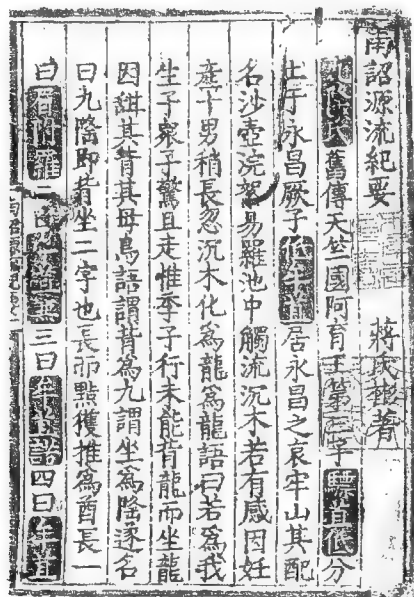 南詔源流紀要 蔣氏著
舊傳天竺國阿育王第三子驃苴低分
土于永昌厥子低牟苴居永昌之哀牢山其配
名沙壺浣絮易羅池中觸流沉木若有感因妊
產十男稍長忽沉木化爲龍爲龍語曰若爲我
生子衆子驚且走惟季子行未能背龍而坐龍
因其背其母鳥語謂背爲九謂坐爲隆遂名
曰九隆即背坐二字也長而黠獲推爲酋長一
曰二曰三曰四曰